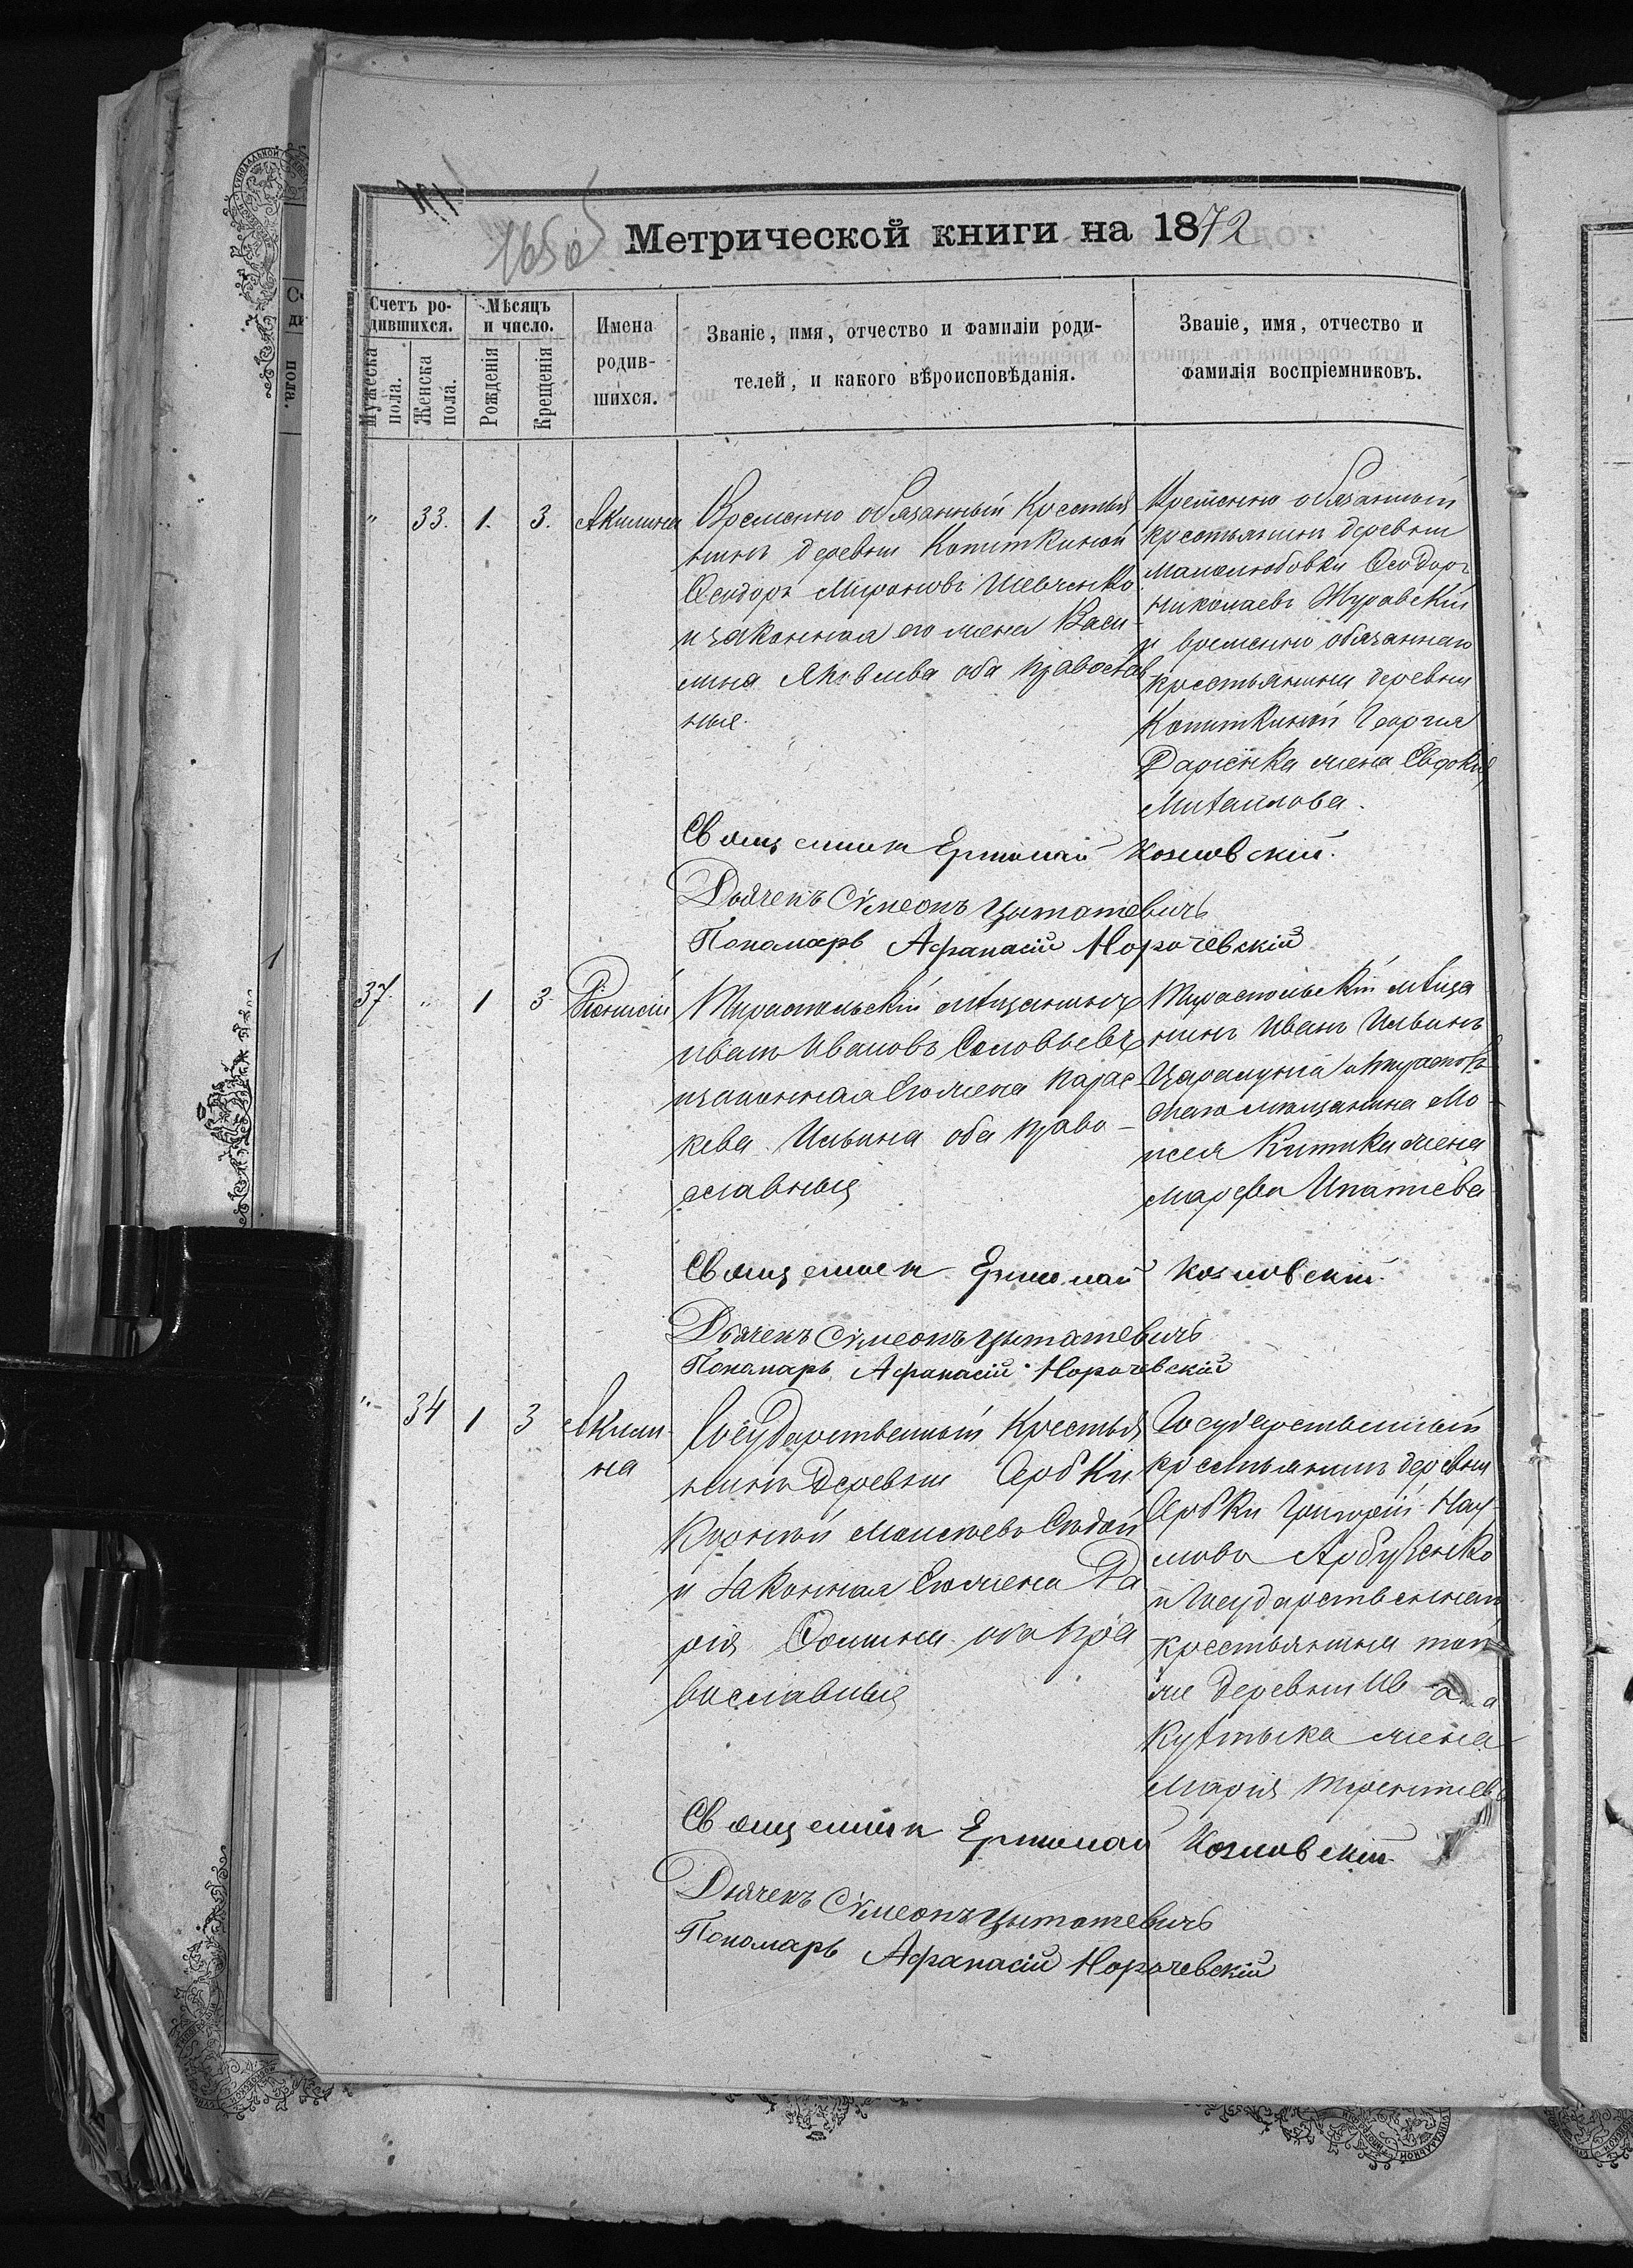 1650
Метрической книги на 1872
Счетъ ро-
дившихся.
Мѣсяцъ
и число.
Имена
родив-
шихся.
Званіе, имя, отчество и фамиліи роди-
телей, и какого вѣроисповѣданія.
Званіе, имя, отчество и
фамилія воспріемниковъ.
Мужеска
пола.
Женска
пола.
Рожденія
Крещенія
" 33. 1. 3. Акилина
Временно обязанный Крестья
нинъ деревни Копиткиной
Феодоръ Мироновъ Шевченко
и законная его жена Васи-
лина Яковлева оба православ
ные.
Временно обязанный
крестьянинъ деревни
Малолюбовки Феодоръ
Николаевъ Журавскій
и временно обязаннаго
крестьянина деревни
Копиткиной Георгія
жена Евдокія
Михайлова.
Священникъ Ермолай Козловскій.
Дьячекъ Сѵмеонъ Цытатевичъ
Пономарь Афанасій Норочевскій
37. " 1 3 Діонисій
Тираспольскій мѣщанинъ
Иванъ Ивановъ Соловьевъ
и законная его жена Парас-
кева Ильина оба право-
славныя
Тираспольскій мѣща
нинъ Иванъ Ильинъ
и Тираспольс
каго мещанина Мо-
исея жена
Марфа Ипатіева
Священникъ Ермолай Козловскій.
Дьячекъ Сѵмеонъ Цытатевичъ
Пономарь Афанасій Норочевскій
" 34 1 3 Акили-
на
Государственный Крестья
нинъ деревни Сербки
Корнилій Моисеевъ
и Законная Его жена Да
рія оба пра
вославныя
Государственный
крестьянинъ деревни
Сербки Григорій Нау-
мовъ Арбузенко
и Государственнаго
крестьянина той
же деревни Ивана
жена
Марія Терентіева
Священникъ Ермолай Козловскій
Дьячекъ Сѵмеонъ Цытатевичъ
Пономарь Афанасій Норочевскій